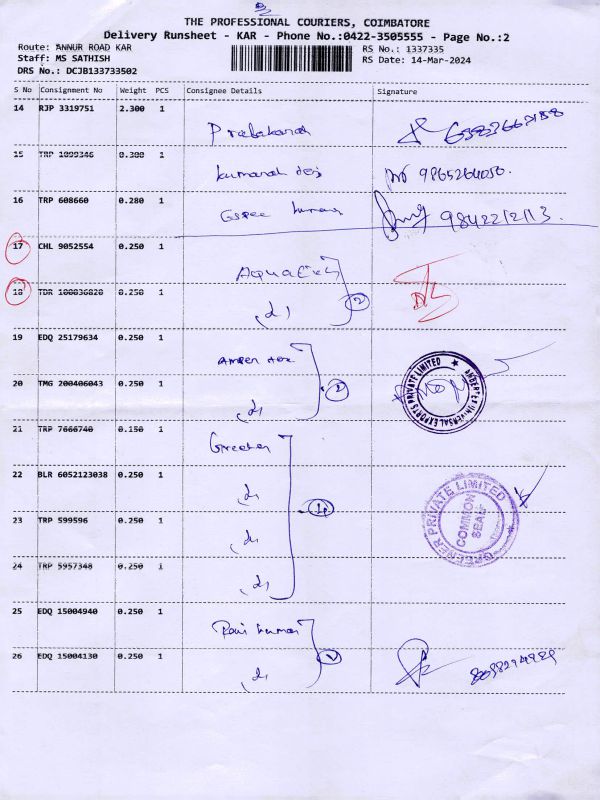 THE PROFESSIONAL COURIERS, COIMBATORE
Delivery Runsheet - KAR - Phone No.:0422-3505555 - Page No.:2
Route: ANNUR ROAD KAR
RS No.: 1337335
Staff: MS SATHISH
RS Date: 14-Mar-2024
DRS No.: DCJB133733502
S No Consignment No Weight PCS Consignee Details Signature
14 RJP 3319751 2.300 1
Prabakaran
15 TRP 1099346 0.300 1
9865264050.
16 TRP 608660 0.280 1
9842212113.
17 CHL 9052554 0.250 1
18 TDR 100036820 0.250 1
2
19 EDQ 25179634 0.250 1
PRIVATE LIMITED
20 TMG 200406043 0.250 1
2
21 TRP 7666740 0.150 1
Greener
22 BLR 6052123038 0.250 1
GREENER PRIVATE LIMITED
COMMON
SEAL
23 TRP 599596 0.250 1
24 TRP 5957348 0.250 1
25 EDQ 15004940 0.250 1
Ravi kumar
26 EDQ 15004130 0.250 1